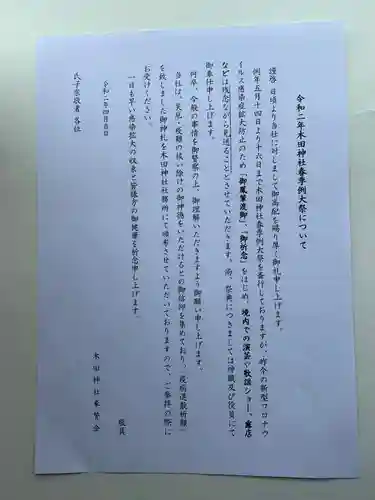 令和二年木田神社春季例大祭について
謹啓 日頃より当社に対しまして御高配を賜り厚く御礼申し上げます。
例年五月十四日より十六日まで木田神社春季例大祭を斎行しておりますが、昨今の新型コロナウ
イルス感染症拡大防止のため「御鳳輦渡御」、「御祈念」をはじめ、境内での演芸や歌謡ショー、露店
などは残念ながら見送ることとさせていただきます。尚、祭典につきましては神職及び役員にて
御奉仕申し上げます。
何卒、今般の事情を御賢察の上、御理解いただきますよう御願い申し上げます。
当社は、災厄・疫難の祓い除けの御神徳をいただけるとの御信仰を集めており、疫病退散祈願
を致しました御神札を木田神社社務所にて頒布させていただいておりますので、ご参拝の際に
お受けください。
一日も早い感染拡大の収束と皆様方の御健康を祈念申し上げます。
令和二年四月吉日
木田神社奉賛会
役員
氏子崇敬者 各位